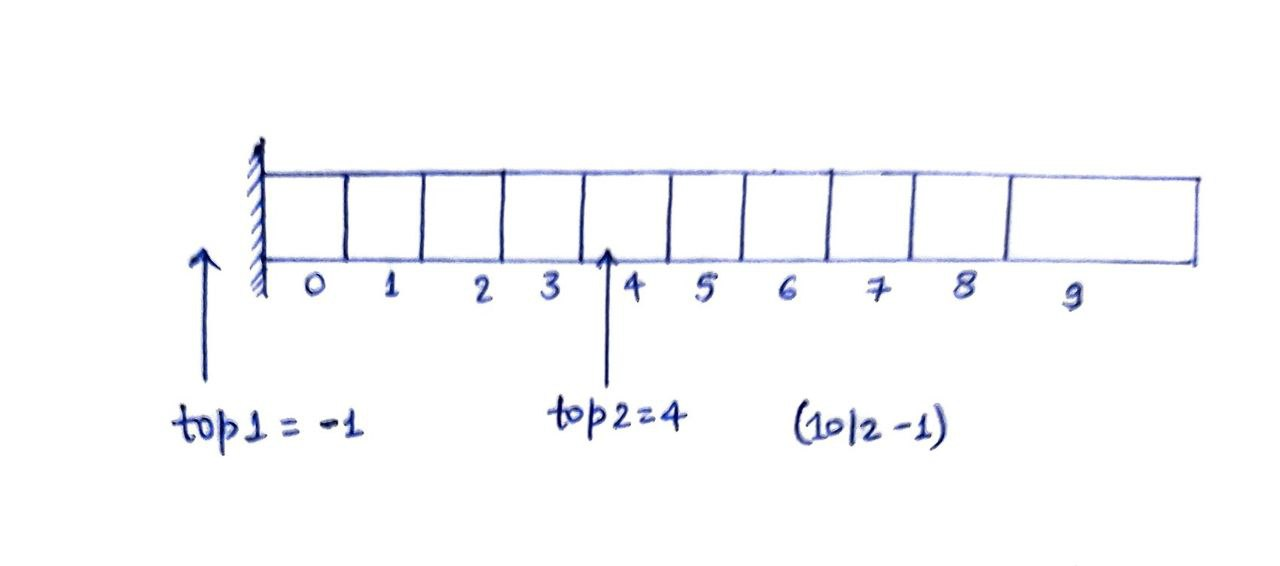 0 1 2 3 4 5 6 7 8 9
top1 = -1 top2=4 (10/2 -1)